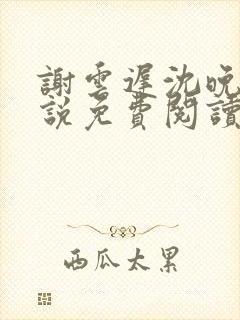 謝雲遲沈晚
說免費閱讀
西瓜太累